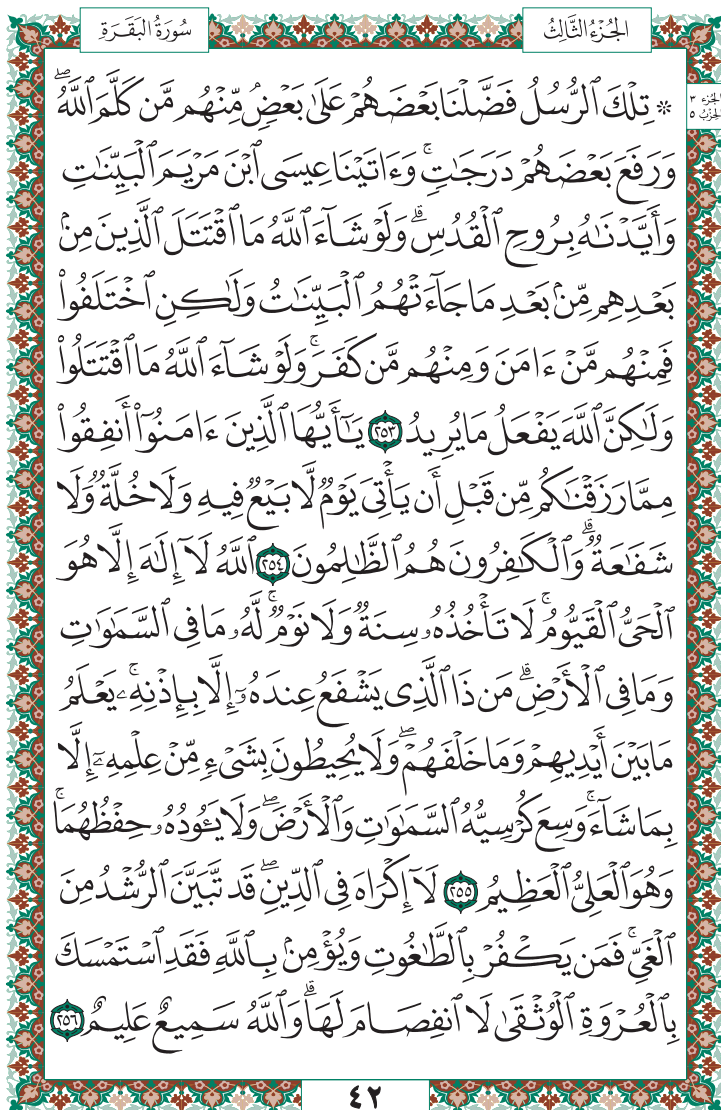 الجُزْءُ الثَّالِثُ
سُورَةُ البَقَرَةِ
الجُزء ٣
الحِزْبُ ٥
۞ تِلْكَ ٱلرُّسُلُ فَضَّلْنَا بَعْضَهُمْ عَلَىٰ بَعْضٍۘ مِّنْهُم مَّن كَلَّمَ ٱللَّهُۖ
وَرَفَعَ بَعْضَهُمْ دَرَجَٰتٍۚ وَءَاتَيْنَا عِيسَى ٱبْنَ مَرْيَمَ ٱلْبَيِّنَٰتِ
وَأَيَّدْنَٰهُ بِرُوحِ ٱلْقُدُسِۗ وَلَوْ شَآءَ ٱللَّهُ مَا ٱقْتَتَلَ ٱلَّذِينَ مِنۢ
بَعْدِهِم مِّنۢ بَعْدِ مَا جَآءَتْهُمُ ٱلْبَيِّنَٰتُ وَلَٰكِنِ ٱخْتَلَفُوا۟
فَمِنْهُم مَّنْ ءَامَنَ وَمِنْهُم مَّن كَفَرَۚ وَلَوْ شَآءَ ٱللَّهُ مَا ٱقْتَتَلُوا۟
وَلَٰكِنَّ ٱللَّهَ يَفْعَلُ مَا يُرِيدُ ٢٥٣ يَٰٓأَيُّهَا ٱلَّذِينَ ءَامَنُوٓا۟ أَنفِقُوا۟
مِمَّا رَزَقْنَٰكُم مِّن قَبْلِ أَن يَأْتِىَ يَوْمٌ لَّا بَيْعٌ فِيهِ وَلَا خُلَّةٌ وَلَا
شَفَٰعَةٌۗ وَٱلْكَٰفِرُونَ هُمُ ٱلظَّٰلِمُونَ ٢٥٤ ٱللَّهُ لَآ إِلَٰهَ إِلَّا هُوَ
ٱلْحَىُّ ٱلْقَيُّومُۚ لَا تَأْخُذُهُۥ سِنَةٌ وَلَا نَوْمٌۚ لَّهُۥ مَا فِى ٱلسَّمَٰوَٰتِ
وَمَا فِى ٱلْأَرْضِۗ مَن ذَا ٱلَّذِى يَشْفَعُ عِندَهُۥٓ إِلَّا بِإِذْنِهِۦۚ يَعْلَمُ
مَا بَيْنَ أَيْدِيهِمْ وَمَا خَلْفَهُمْۖ وَلَا يُحِيطُونَ بِشَىْءٍ مِّنْ عِلْمِهِۦٓ إِلَّا
بِمَا شَآءَۚ وَسِعَ كُرْسِيُّهُ ٱلسَّمَٰوَٰتِ وَٱلْأَرْضَۖ وَلَا يَـُٔودُهُۥ حِفْظُهُمَاۚ
وَهُوَ ٱلْعَلِىُّ ٱلْعَظِيمُ ٢٥٥ لَآ إِكْرَاهَ فِى ٱلدِّينِۖ قَد تَّبَيَّنَ ٱلرُّشْدُ مِنَ
ٱلْغَىِّۚ فَمَن يَكْفُرْ بِٱلطَّٰغُوتِ وَيُؤْمِنۢ بِٱللَّهِ فَقَدِ ٱسْتَمْسَكَ
بِٱلْعُرْوَةِ ٱلْوُثْقَىٰ لَا ٱنفِصَامَ لَهَاۗ وَٱللَّهُ سَمِيعٌ عَلِيمٌ ٢٥٦
٤٢